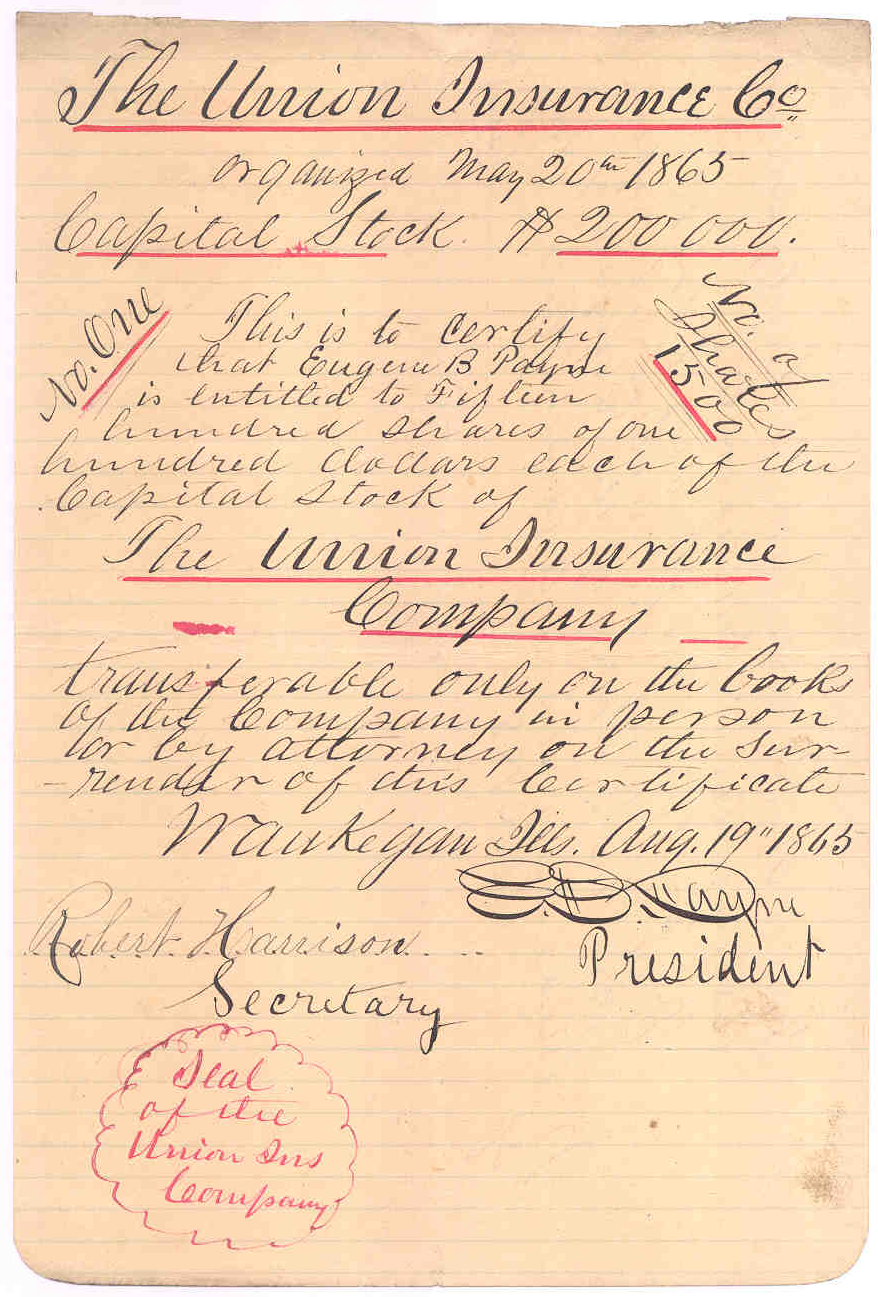 The Union Insurance Co
organized May 20th 1865
Capital Stock. $200 000.
No. One
No. of
Shares
1500
This is to certify
that Eugene B Payne
is entitled to Fifteen
hundred shares of one
hundred dollars each of the
Capital Stock of
The Union Insurance
Company
transferable only on the books
of the Company in person
or by attorney on the sur-
-render of this Certificate
Waukegan Ills. Aug. 19" 1865
E.B. Payne
President
Robert Harrison
Secretary
Seal
of the
Union Ins
Company